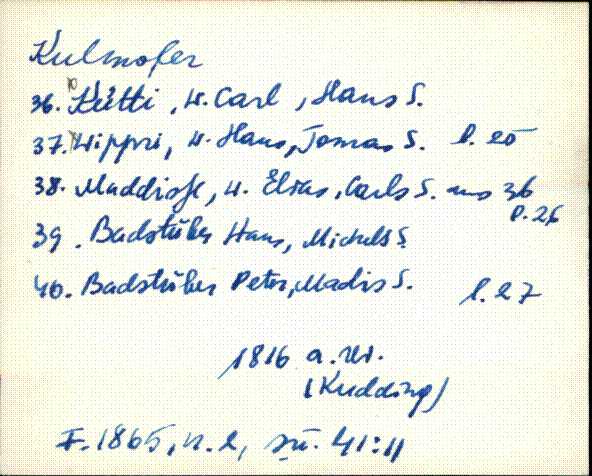 Kulmofer
36. Kütti, W. Carl, Hans S.
37. Wippri, W. Hans, Tomas S. l. 25
38. Maddisse, W. Elias, Carls S. aus 36
l. 26
39. Badstüber Hans, Michels S.
40. Badstüber Peter, Madis S. l. 27
1816 a.
(Kudding)
F. 1865, n. 2, sü. 41:11